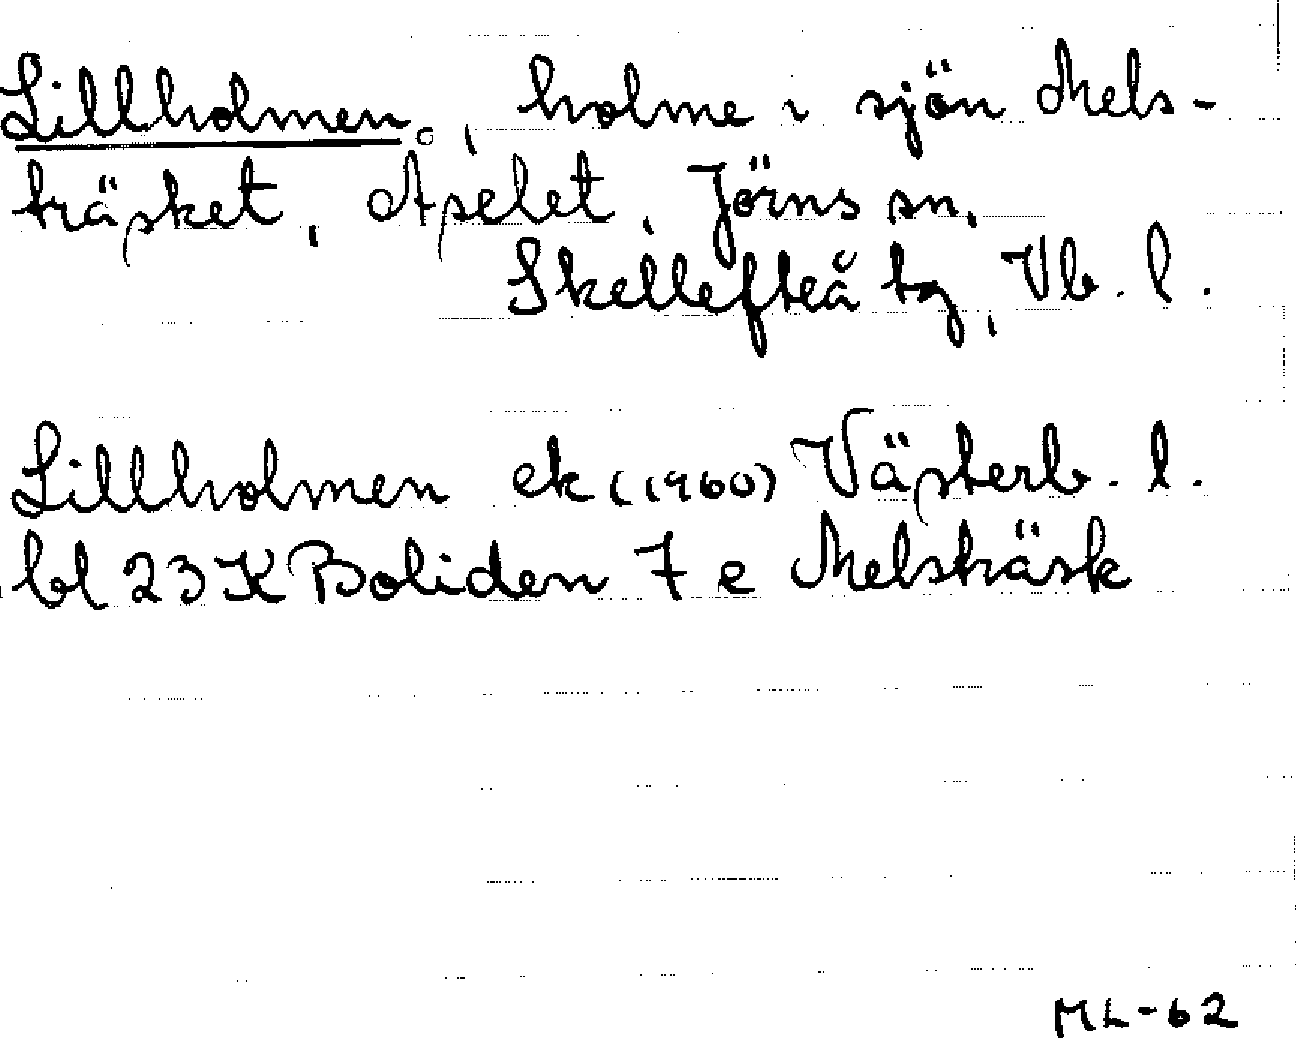 Lillholmen, holme i sjön Mels-
träsket, Åselet, Jörns sn,
Skellefteå tg, Vb. l.
Lillholmen ek (1960) Västerb. l.
bl 23 K Boliden 7 e Melsträsk
ML-62